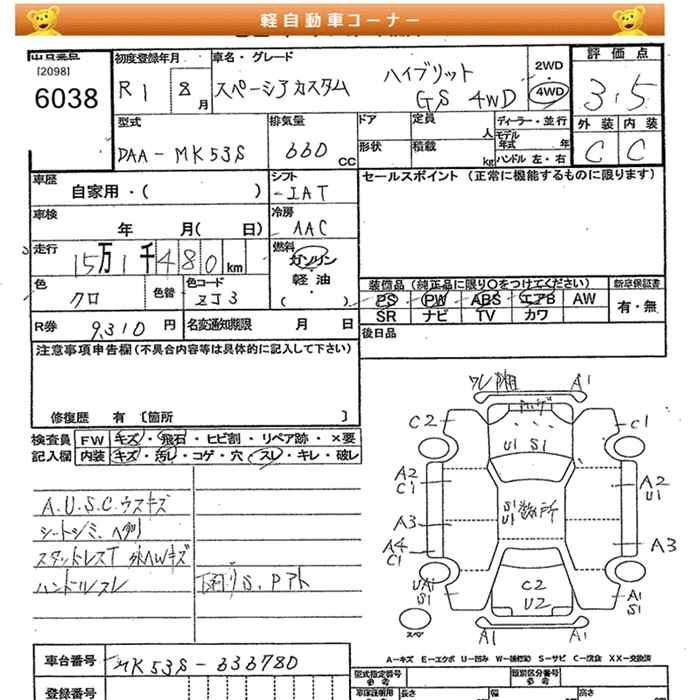 軽自動車コーナー
[2098]
6038
初度登録年月
R1 8月
車名・グレード
スペーシアカスタム ハイブリット GS 4WD
2WD
4WD
評価点
3.5
外装 内装
C C
型式
DAA-MK53S
排気量
660 CC
ドア
形状
定員 人
積載 kg
ディーラー・並行
モデル年式 年
ハンドル 左・右
車歴
自家用・( )
シフト
IAT
セールスポイント (正常に機能するものに限ります)
車検
年 月( 日)
冷房
AAC
走行
15万1千480km
燃料
ガソリン
軽油
( )
色
クロ
色替
色コード
ZJ3
装備品 (純正品に限り○をつけてください)
新車保証書
PS PW ABS エアB AW
SR ナビ TV カワ
有・無
R券
9,310 円
名変通知期限 月 日
後日品
注意事項申告欄(不具合内容等は具体的に記入して下さい)
修復歴 有 [箇所 ]
検査員 FW キズ・飛石・ヒビ割・リペア跡・×要
記入欄 内装 キズ・汚レ・コゲ・穴・スレ・キレ・破レ
A.U.S.C.ウスキズ
シートシミ、ヘタリ
スタッドレスT 外AWキズ
ハンドルスレ
下廻りS、Pアト
A1
C2
C1
U1 S1
A2
C1
A2
U1
S1
U1
数ヶ所
A3
A3
A4
C1
UA1
S1
C2
U2
A1
S1
スペア
A1
A1
A-キズ E-エクボ U-凹み W-補修跡 S-サビ C-腐食 XX-交換済
車台番号
MK53S-636780
登録番号
型式指定番号
参考
類別区分番号
参考
長さ
幅
高さ